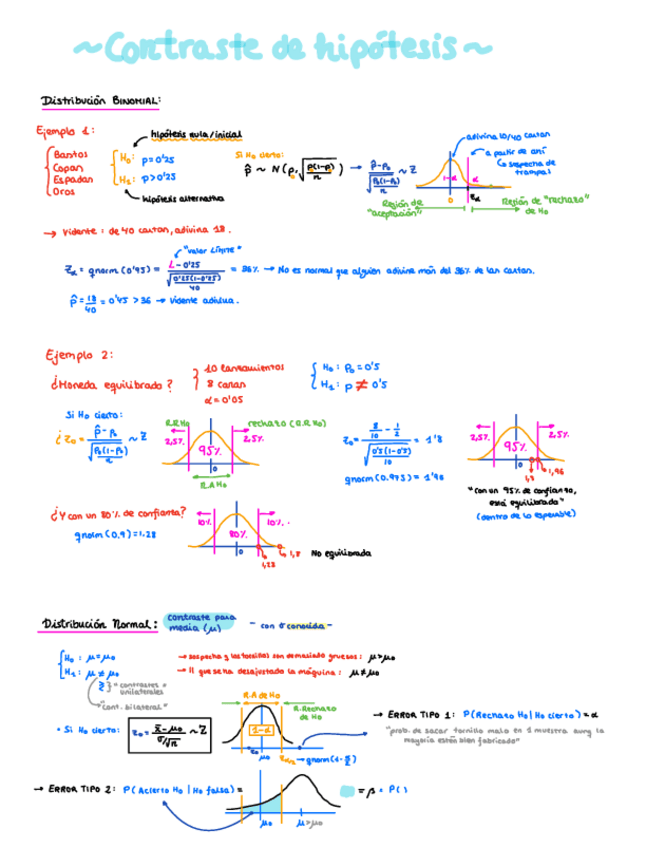 ~Contraste de hipótesis~
Distribución BINOMIAL:
Ejemplo 1:
Bastos
Copas
Espadas
Oros
hipótesis nula/inicial
H₀: p=0'25
H₁: p>0'25
hipótesis alternativa
Si H₀ cierto:
p̂ ~ N(p, √(p(1-p)/n)) → (p̂-p₀)/√(p₀(1-p₀)/n) ~ Z
adivina 10/40 cartas
a partir de ahí
↳ sospecha de trampas
1-α α
0 zα
Región de "aceptación"
Región de "rechazo" de H₀
→ Vidente: de 40 cartas, adivina 18.
"valor límite"
Zα = qnorm(0'95) = (L-0'25)/√(0'25(1-0'25)/40) = 36% → No es normal que alguien adivine más del 36% de las cartas.
p̂ = 18/40 = 0'45 > 36 → Vidente adivina.
Ejemplo 2:
¿Moneda equilibrada?
10 lanzamientos
8 caras
α=0'05
H₀: p₀=0'5
H₁: p≠0'5
Si H₀ cierto:
¿z₀ = (p̂-p₀)/√(p₀(1-p₀)/n) ~ Z
R.R H₀
rechazo (R.R H₀)
2,5% 95% 2,5%
0
R.A H₀
z₀ = (8/10 - 1/2)/√(0'5(1-0'5)/10) = 1'8
qnorm(0.975) = 1'96
2,5% 95% 2,5%
0 1,8 1,96
"con un 95% de confianza, está equilibrada"
(dentro de lo esperable)
¿Y con un 80% de confianza?
qnorm(0.9)=1.28
10% 80% 10%
0 1,8
1,28
No equilibrada
Distribución Normal: contraste para media (μ) - con σ conocida -
H₀: μ=μ₀
H₁: μ≠μ₀
"contrastes unilaterales"
"cont. bilateral"
→ sospecha q los tornillos son demasiado gruesos: μ>μ₀
→ 11 que se ha desajustado la máquina: μ≠μ₀
R.A de H₀
R.Rechazo de H₀
1-α
μ₀
→ qnorm(1-α/2)
• Si H₀ cierto: z₀ = (x̄-μ₀)/(σ/√n) ~ Z
→ ERROR TIPO 1: P(Rechazo H₀|H₀ cierto)=α
"prob. de sacar tornillo malo en 1 muestra aunq la mayoría estén bien fabricado"
→ ERROR TIPO 2: P(Acierto H₀|H₀ falsa)=
μ₀ μ>μ₀
= β = P( )